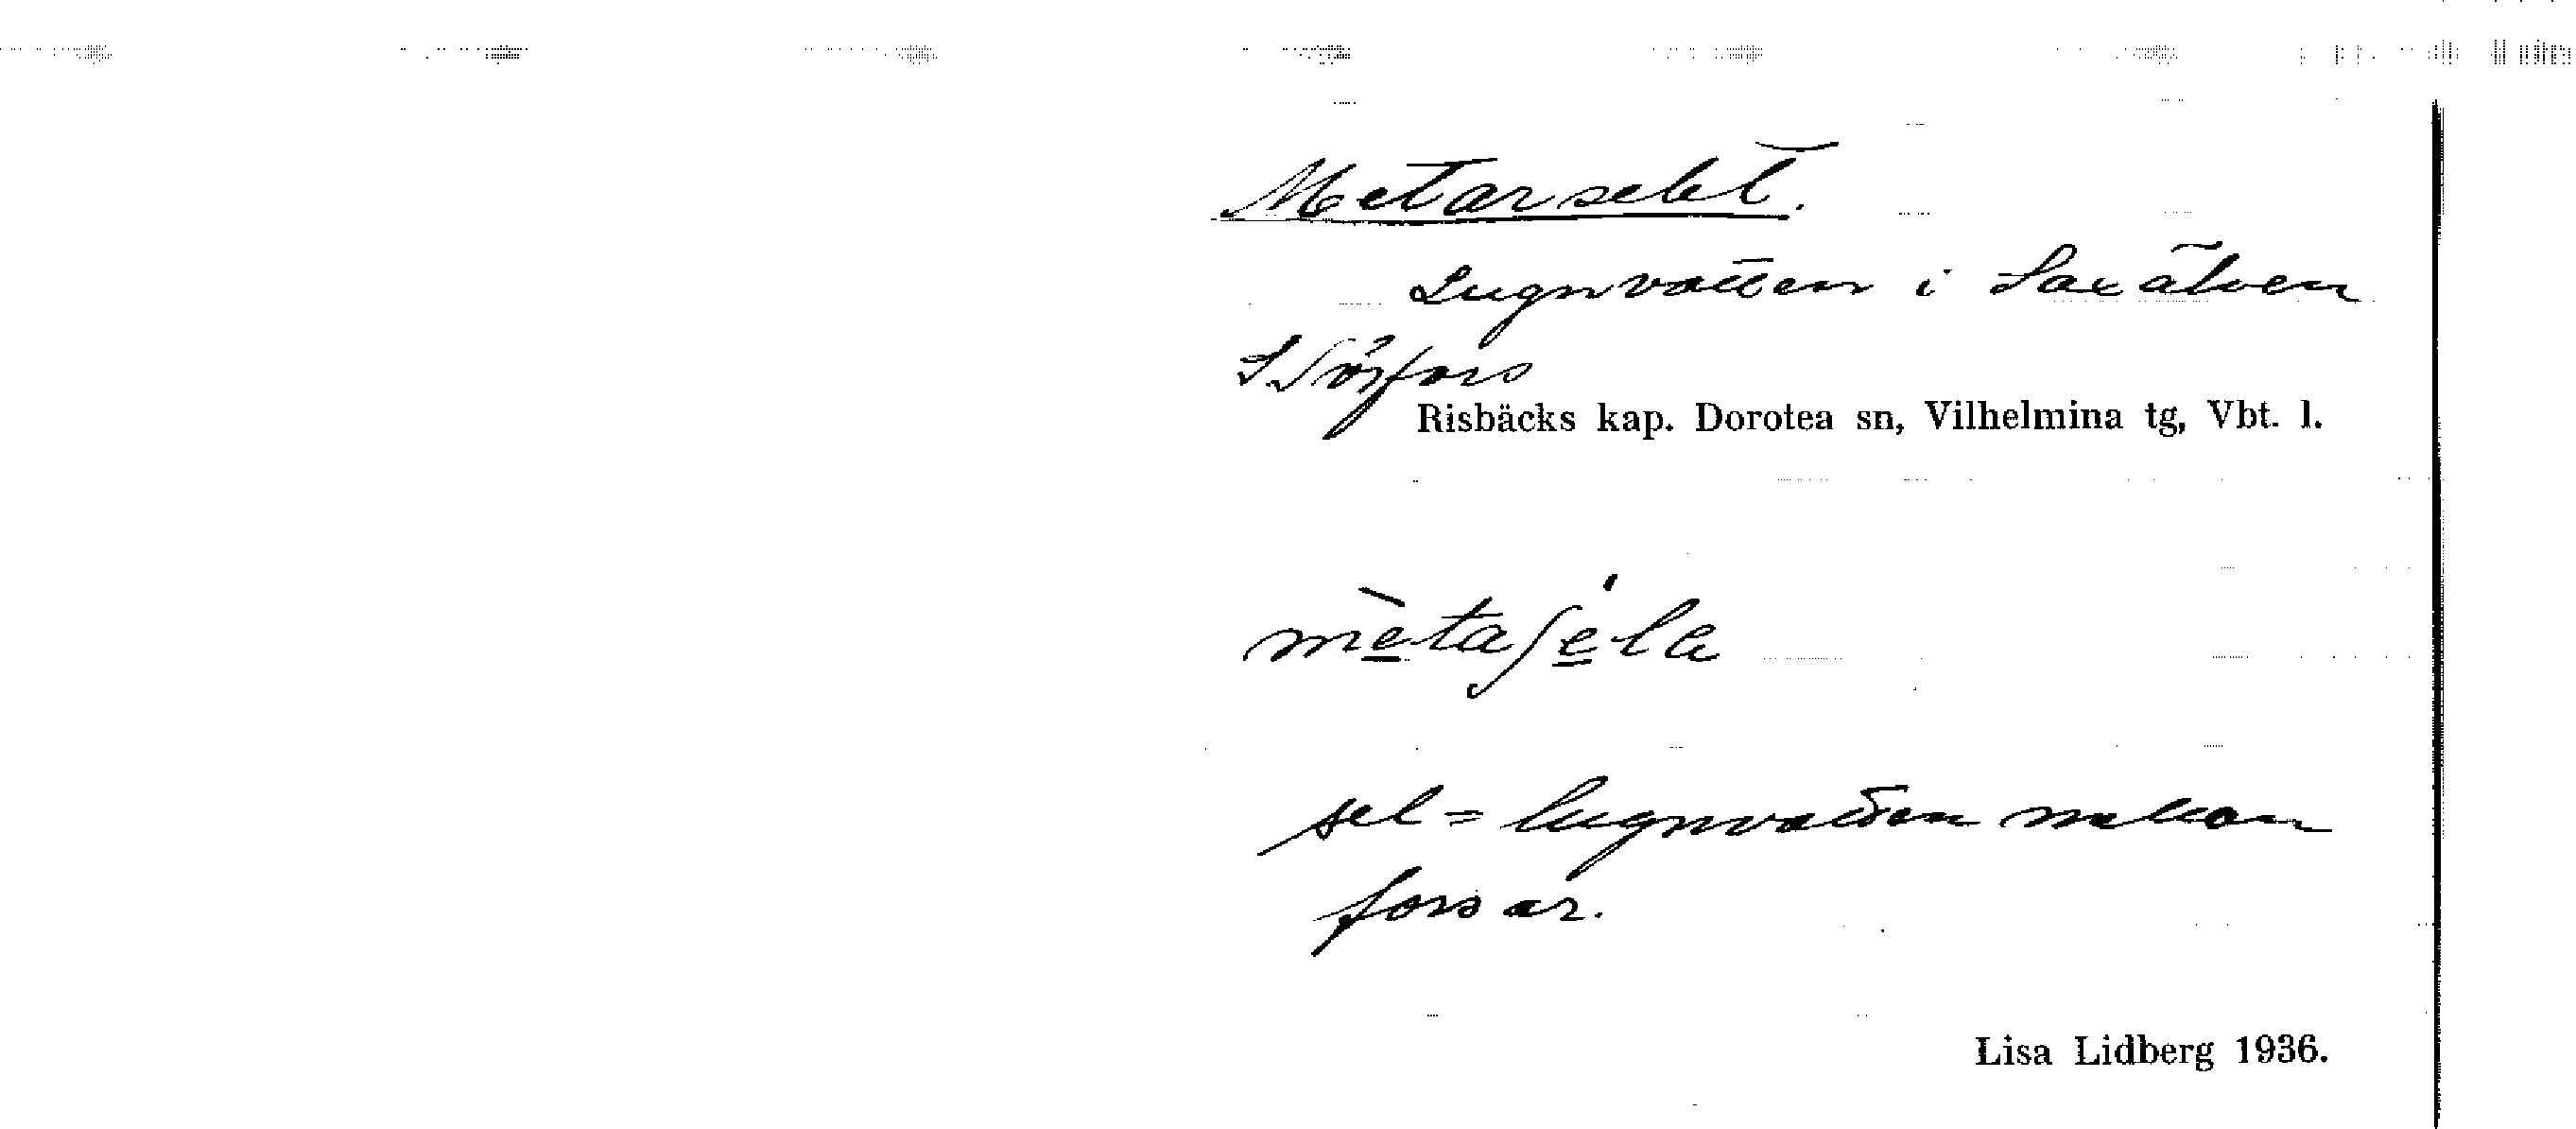 Metarselet.
Lugnvatten i Saxälven
S Sörfors
Risbäcks kap. Dorotea sn, Vilhelmina tg, Vbt. l.
mètaséla
sel = lugnvatten mellan
forsar.
Lisa Lidberg 1936.